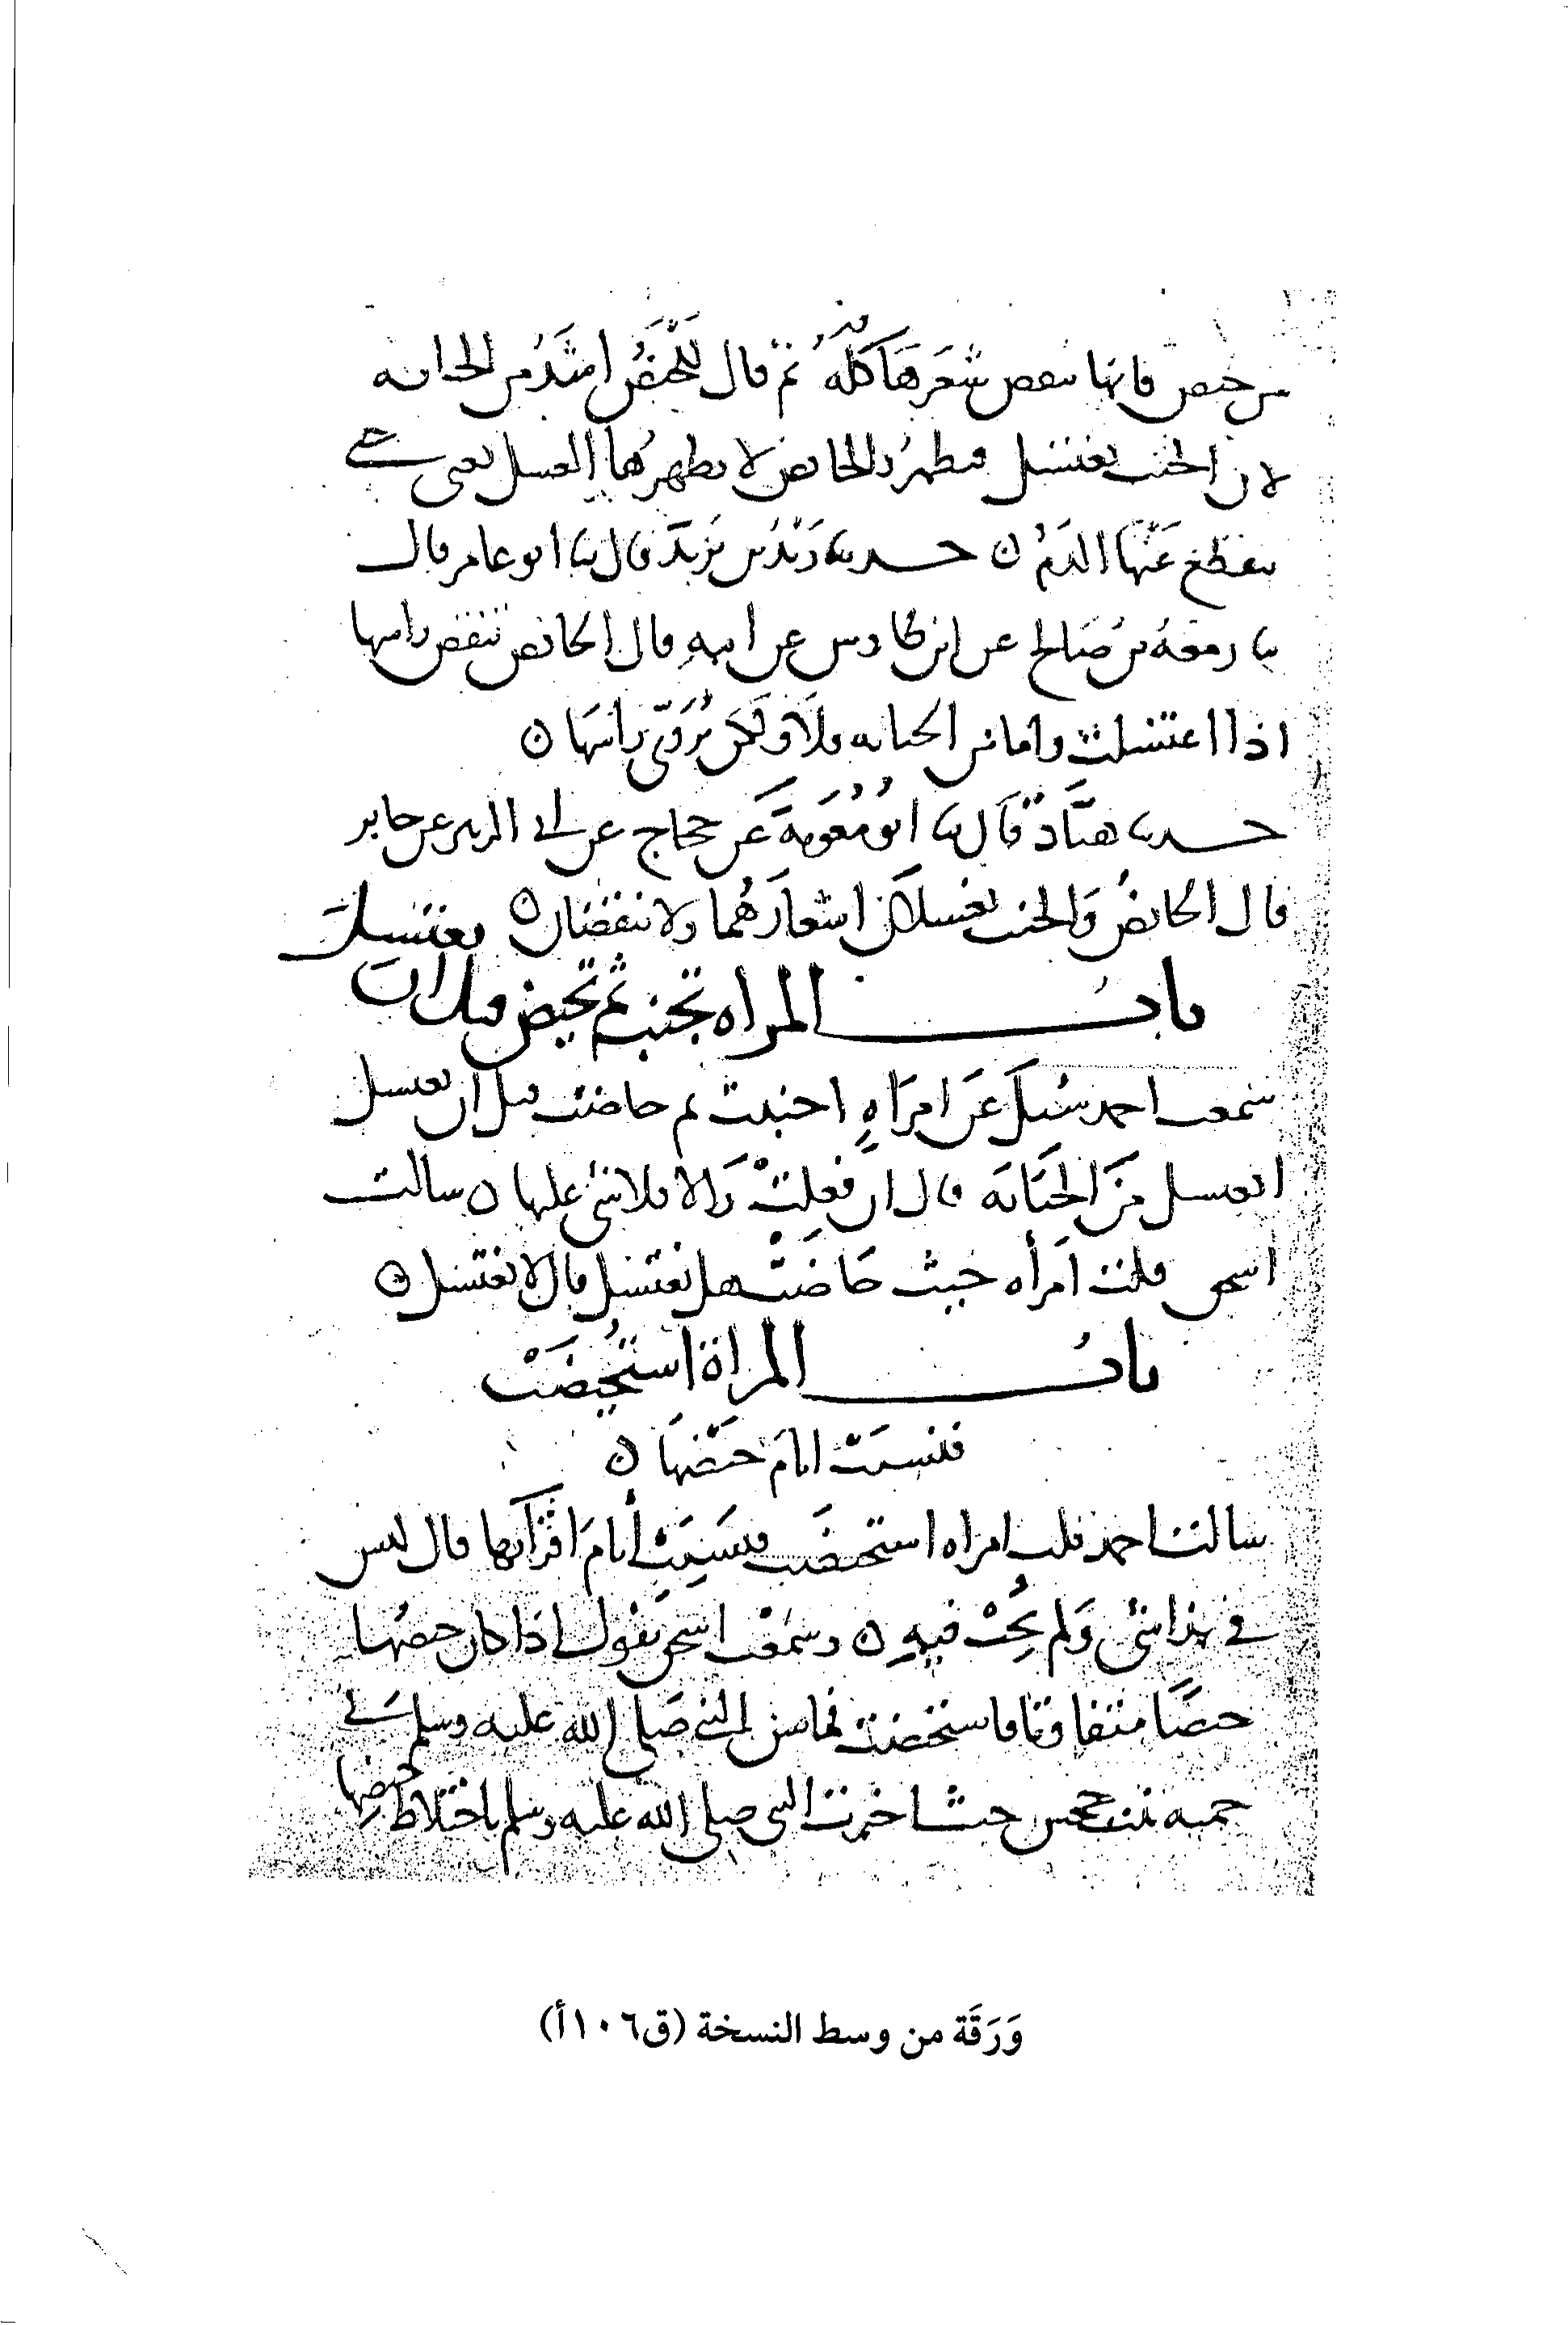 من حيض فانها تنقض شعرها كله ثم قال للحيض اشد من الجنابه
لان الجنب يغتسل فيطهر والحائض لا يطهرها الغسل يعني حتى
ينقطع عنها الدم ن حدثنا زيد بن يزيد قال ثنا ابو عامر قال
ثنا زمعة بن صالح عن ابن طاوس عن ابيه قال الحائض تنقض راسها
اذا اغتسلت واما من الجنابه فلا ولكن تروي راسها ن
حدثنا هناد قال ثنا ابو معوية عن حجاج عن ابي الزبير عن جابر
قال الحائض والجنب يغسلان اشعارهما ولا ينقضان ن
باب المراه تجنب ثم تحيض قبل ان تغتسل
سمعت احمد سئل عن امراة اجنبت ثم حاضت قبل ان تغتسل
اتغتسل من الجنابه قال ان فعلت والا فلا شي عليها ن سالت
اسحق قلت امرأه حيث حاضت هل تغتسل قال لا تغتسل ن
باب المراة استحيضت
فنسيت ايام حيضها ن
سالت احمد قلت امراه استحيضت فنسيت أيام اقرآئها قال ليس
في هذا شي ولم يجب فيه ن وسمعت اسحق يقول اذا كان حيضها
حيضا متفاوتا فاستحيضت فما سن النبي صلى الله عليه وسلم في
حمنه بنت جحش حيث اخبرت النبي صلى الله عليه وسلم باختلاط حيضها
وَرَقَة من وسط النسخة (ق١٠٦أ)